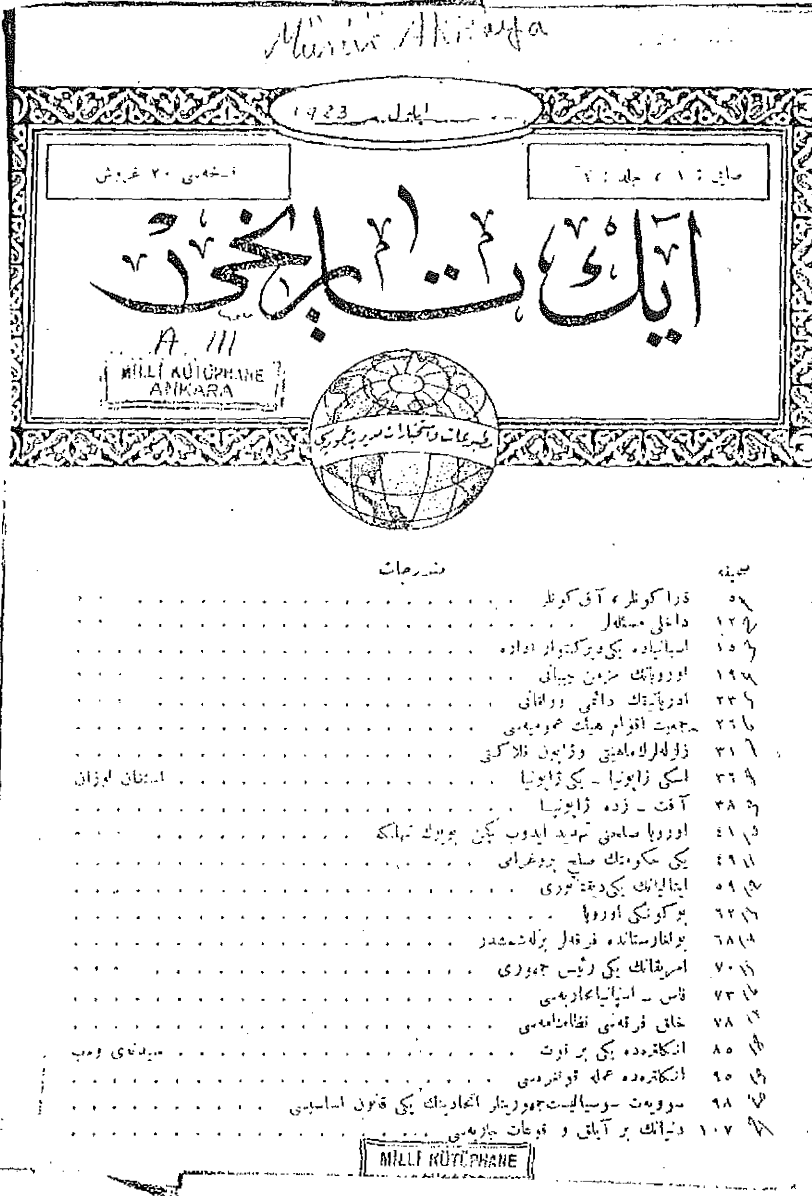 Münir Akkaya
ایلول 1923
صایی : ۱ ، جلد :
نسخه‌سی ۲۰ غروش
آیک تاریخی
A. III
MİLLİ KÜTÜPHANE
ANKARA
مطبوعات و استخبارات مدیریتی
صحیفه مندرجات
۵ قرا کونلر ، آق کونلر
۱۲ داخلی مسئله‌لر
۱۵ اسپانیاده یکی دیرکتوار اداره
۱۹ اوروپانك مزمن چبانی
۲۳ آدریاتیقك دائمی
۲۶ جمعیت اقوام هیئت عمومیه‌سی
۳۱ زلزله‌لرك ماهیتی و ژاپون فلاکتی
۳۶ اسکی ژاپونیا ـ یکی ژاپونیا استفان لوزان
۳۸ آفت ـ زده ژاپونیا
۴۱ اوروپا صلحنی تهدید ایدوب بویوك تهلکه
۴۹ یکی حکومتك صلح پروغرامی
۵۹ ایتالیانك یکی دیقتاتوری
۶۲ بوکونکی اوروپا
۶۸ بولغارستانده فرقه‌لر برلشمشدر
۷۰ امریقانك یکی رئیس جمهوری
۷۳ فاس ـ اسپانیا محاربه‌سی
۷۸ خلق فرقه‌سی نظامنامه‌سی
۸۵ انکلتره‌ده یکی بر قوت سیدنه‌ی وهب
۹۵ انکلتره‌ده عمله قونفره‌سی
۹۸ سوویه‌ت سوسیالیست جمهوریتلر اتحادینك یکی قانون اساسیسی
۱۰۷ دنیانك بر آیلق و قوعات جازبه‌سی
MİLLİ KÜTÜPHANE